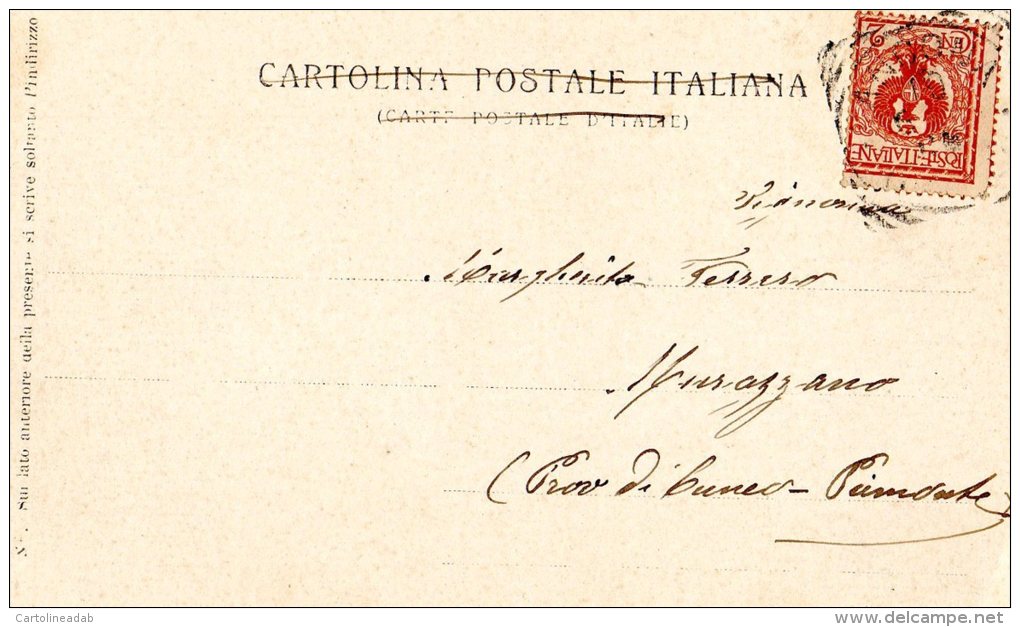 CARTOLINA POSTALE ITALIANA
(CARTE POSTALE D'ITALIE)
CEN 2
POSTE·ITALIANE
Signorina
Margherita Ferrero
Murazzano
(Prov di Cuneo - Piemonte)
NB. Sul lato anteriore della presente si scrive soltanto l'indirizzo
Cartolineadab
www.delcampe.net